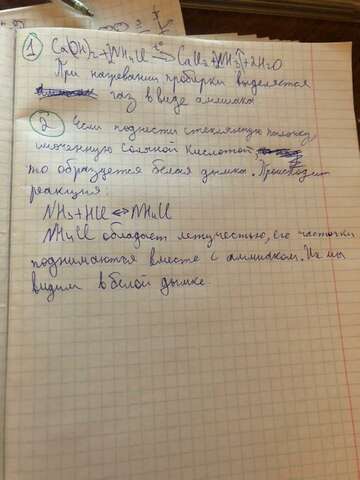 1 Ca(OH)2+2NH4Cl t° → CaCl2+2NH3↑+2H2O
При нагревании пробирки выделяется
газ в виде аммиака
2 Если поднести стеклянную палочку
смоченную соляной кислотой,
то образуется белая дымка. Происходит
реакция:
NH3+HCl ⇔ NH4Cl
NH4Cl обладает летучестью, его частички
поднимаются вместе с аммиаком. Их мы
видим в белой дымке.